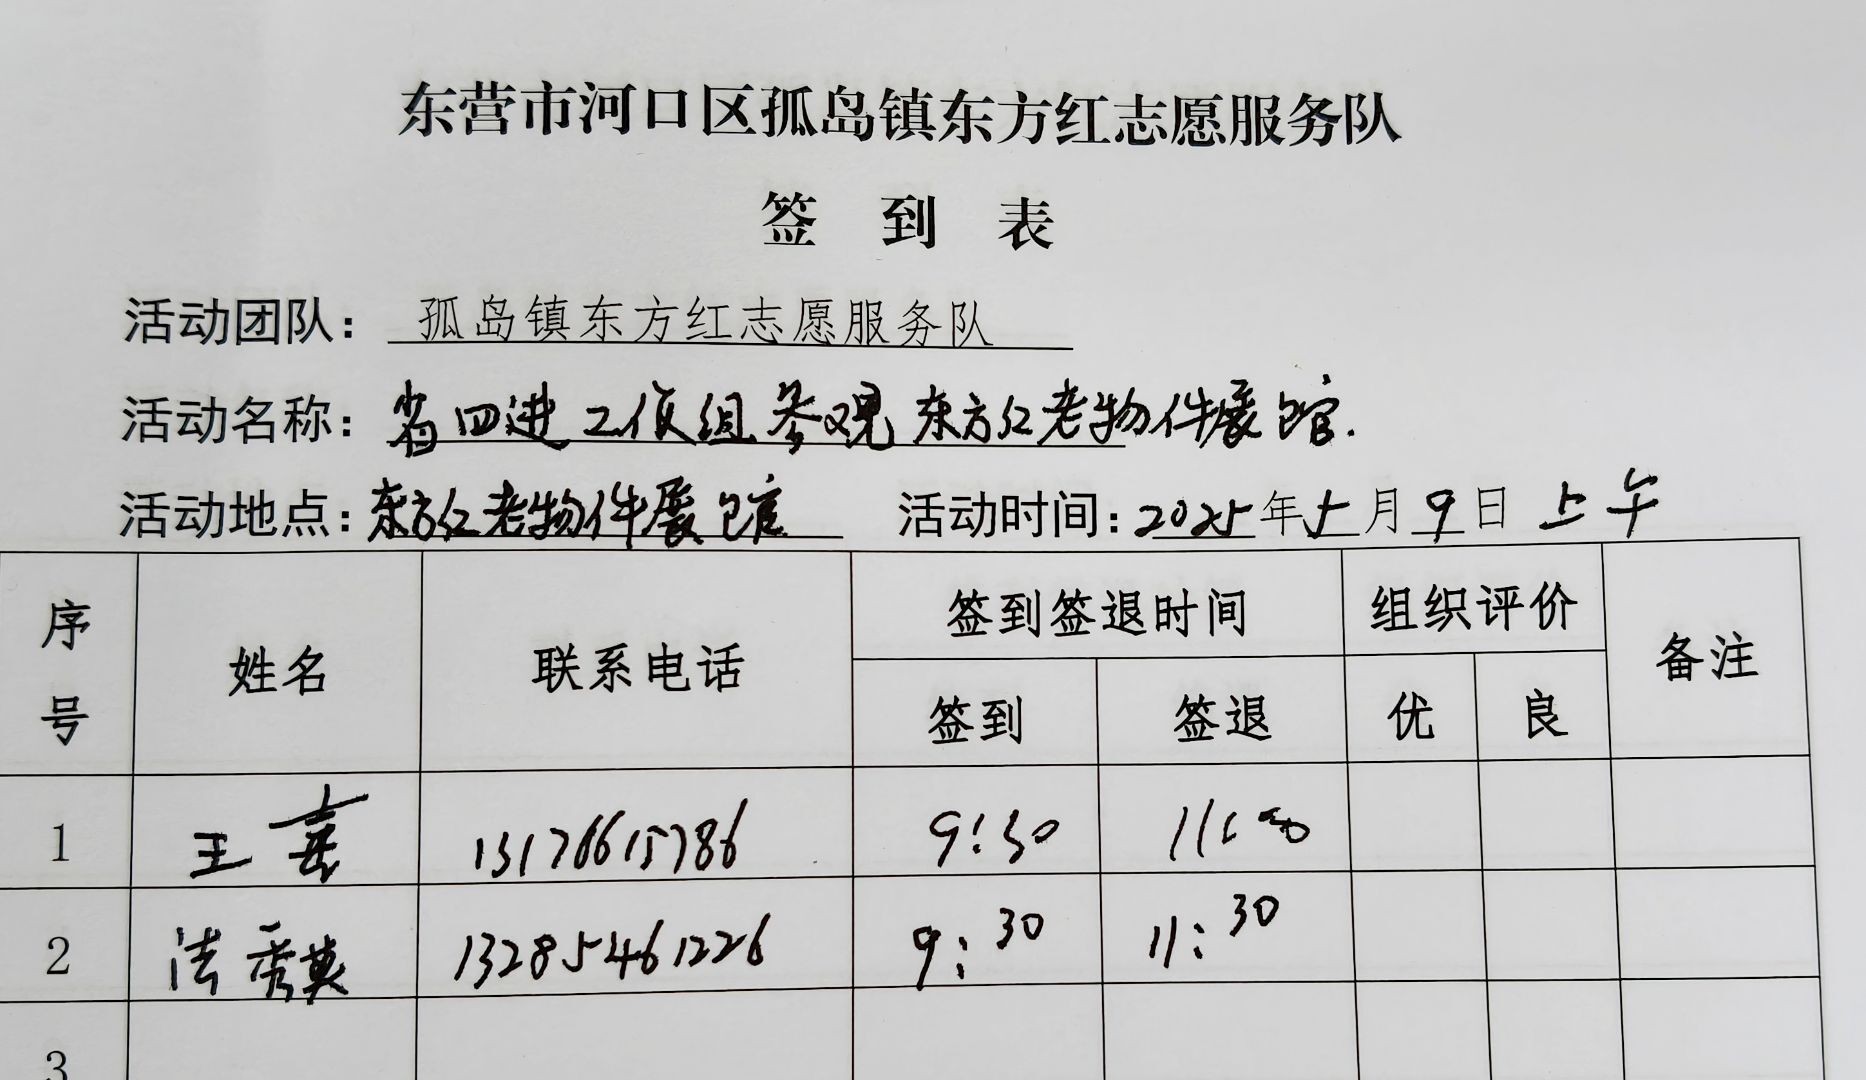 东营市河口区孤岛镇东方红志愿服务队
签 到 表
活动团队：孤岛镇东方红志愿服务队
活动名称：省四进工作组参观东方红老物件展馆.
活动地点：东方红老物件展馆 活动时间：2025年5月9日上午
序号 姓名 联系电话 签到签退时间 组织评价 备注
签到 签退 优 良
1 王 13176615786 9:30
2 法秀英 13285461226 9:30 11:30
3